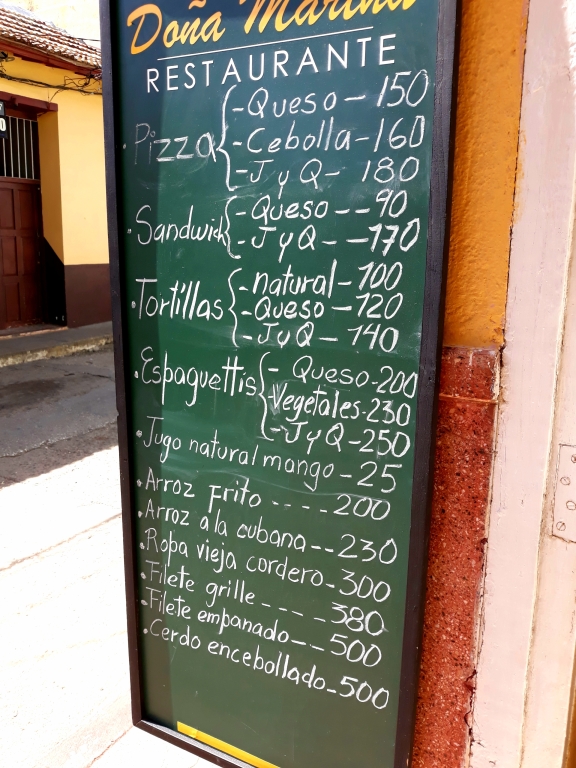 Doña Marina
RESTAURANTE
· Pizza { - Queso - 150
- Cebolla - 160
- J y Q - 180
· Sandwich { - Queso -- 90
- J y Q -- 170
· Tortillas { - natural - 100
- Queso - 120
- J y Q - 140
· Espaguettis { - Queso - 200
- Vegetales - 230
- J y Q - 250
· Jugo natural mango - 25
· Arroz frito ---- 200
· Arroz a la cubana -- 230
· Ropa vieja cordero - 300
· Filete grille ---- 380
· Filete empanado -- 500
· Cerdo encebollado - 500